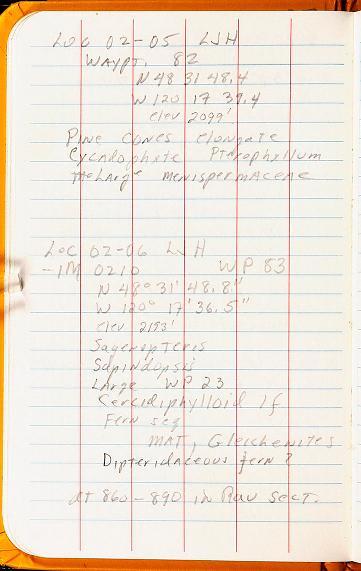 Loc 02-05 LJH
Waypt. 82
N 48 31 48.4
W 120 17 39.4
elev 2099'
Pine cones elongate
Cycadophyte Pterophyllum
Large Menispermaceae
Loc 02-06 LJH
-IM 0210 WP 83
N 48° 31' 48.8"
W 120° 17' 36.5"
elev 2193'
Sagenopteris
Sapindopsis
Large WP 23
Cercidiphylloid lf
Fern seg
MAT, Gleichenites
Dipteridaceous fern?
at 860-890 in Rau Sect.